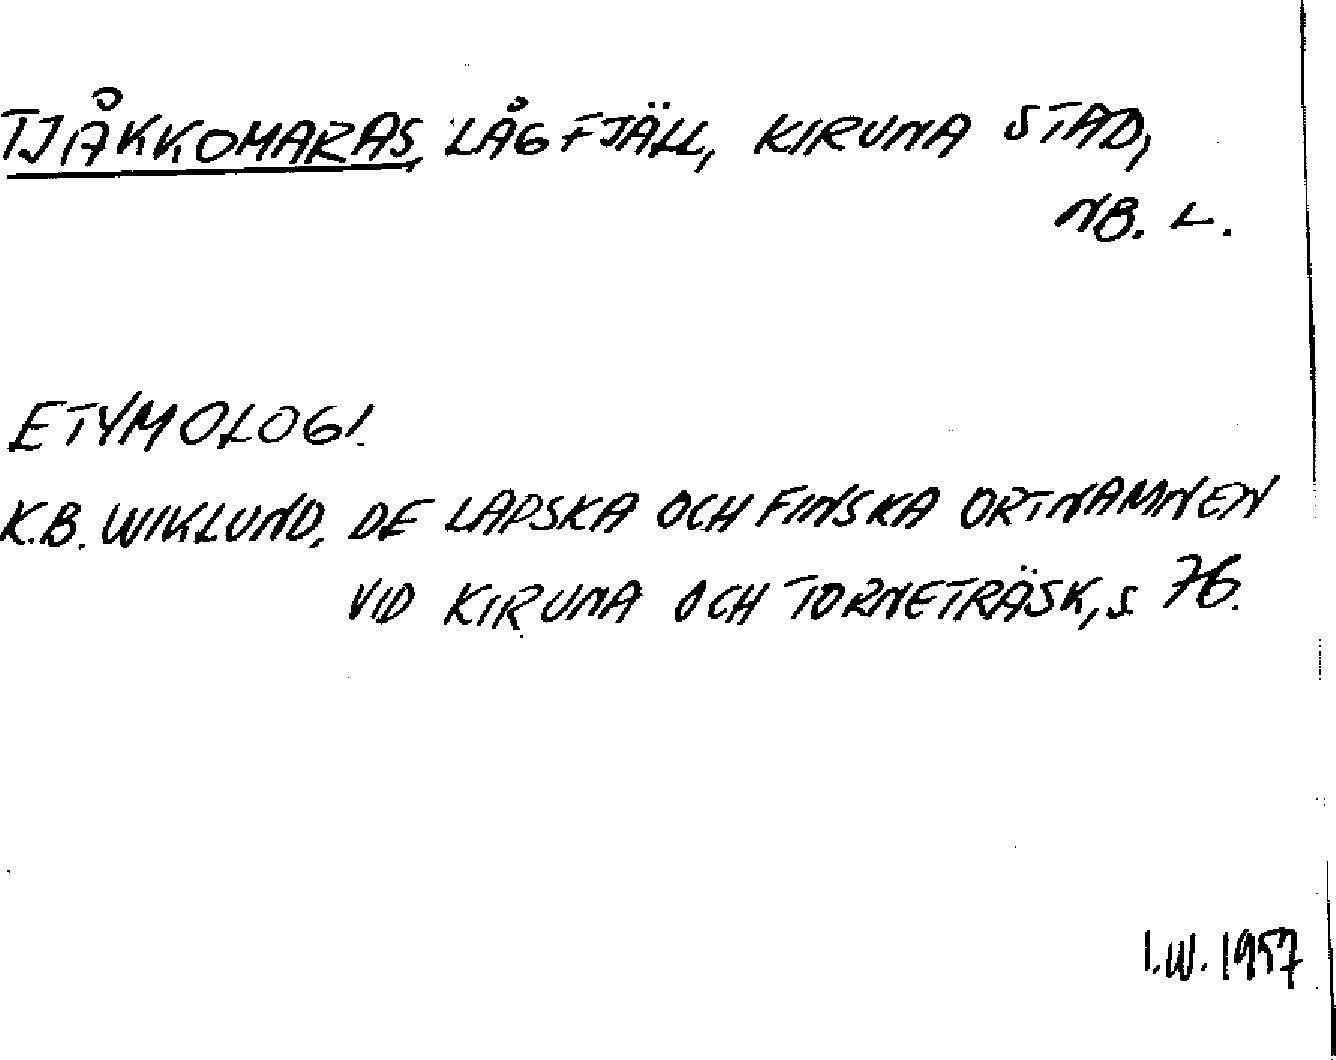 TJÅKKOMARAS, LÅGFJÄLL, KIRUNA STAD,
NB. L.
ETYMOLOGI.
K.B. WIKLUND, DE LAPSKA OCH FINSKA ORTNAMNEN
VID KIRUNA OCH TORNETRÄSK, S. 76.
I.W. 1957